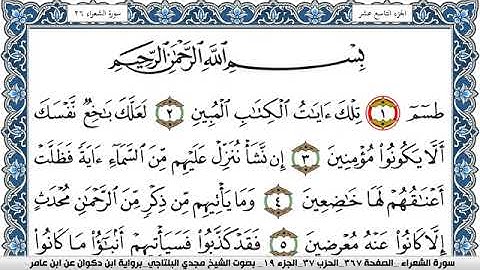 سورة الشعراء ٢٦
الجزء التاسع عشر
بِسْمِ اللَّهِ الرَّحْمَٰنِ الرَّحِيمِ
طسٓمٓ ١ تِلْكَ ءَايَٰتُ الْكِتَٰبِ الْمُبِينِ ٢ لَعَلَّكَ بَٰخِعٌ نَّفْسَكَ
أَلَّا يَكُونُوا۟ مُؤْمِنِينَ ٣ إِن نَّشَأْ نُنَزِّلْ عَلَيْهِم مِّنَ السَّمَآءِ ءَايَةً فَظَلَّتْ
أَعْنَٰقُهُمْ لَهَا خَٰضِعِينَ ٤ وَمَا يَأْتِيهِم مِّن ذِكْرٍ مِّنَ الرَّحْمَٰنِ مُحْدَثٍ
إِلَّا كَانُوا۟ عَنْهُ مُعْرِضِينَ ٥ فَقَدْ كَذَّبُوا۟ فَسَيَأْتِيهِمْ أَنۢبَٰٓؤُا۟ مَا كَانُوا۟
سورة الشعراء _ الصفحة ٣٦٧_الحزب ٣٧_الجزء ١٩_ بصوت الشيخ مجدي البلتاجي_برواية ابن ذكوان عن ابن عامر